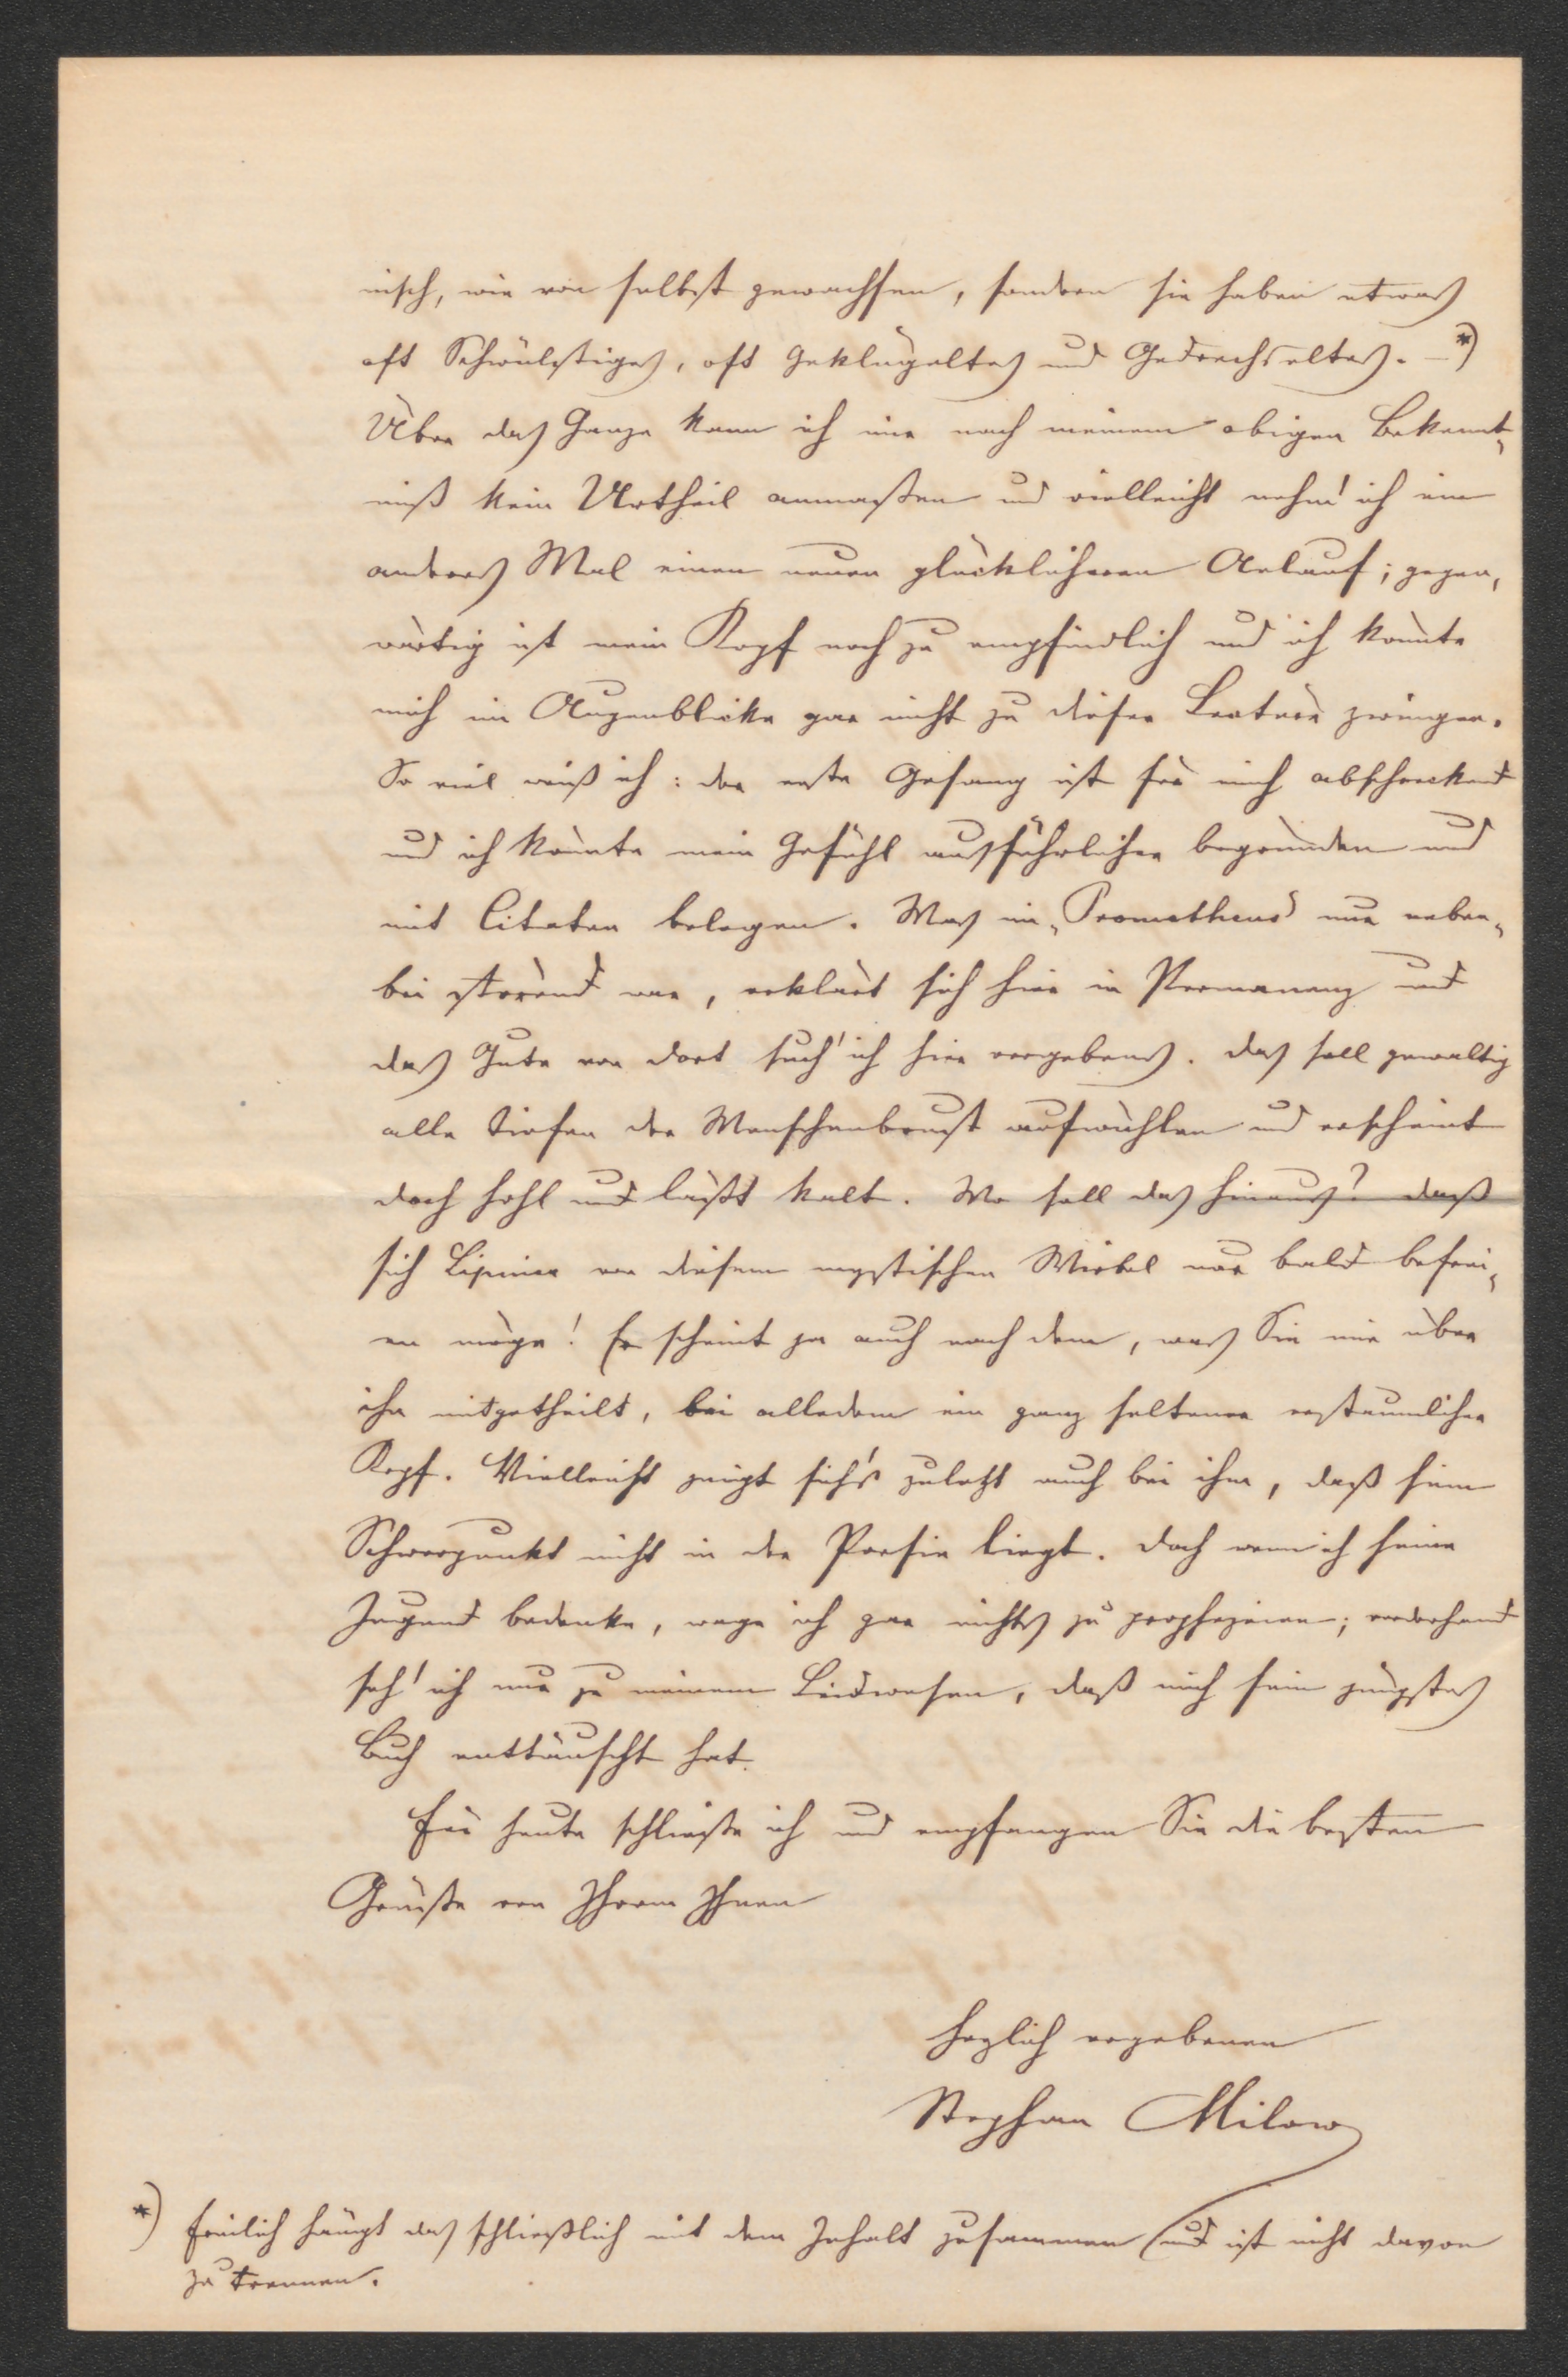 nisch, wie von selbst gewachsen, sondern sie haben etwas
oft Schwülstiges, oft Geklügeltes und Gedrechseltes. –*)
Über das Ganze kann ich mir nach meinem obigen Bekennt-
niß kein Urtheil anmaßen und vielleicht nehm' ich ein
anderes Mal einen neuen glücklicheren Anlauf; gegen-
wärtig ist mein Kopf noch zu empfindlich und ich könnte
mich im Augenblicke gar nicht zu dieser Lectüre zwingen.
So viel weiß ich: der erste Gesang ist für mich abschreckend
und ich könnte mein Gefühl ausführlicher begründen und
mit Citaten belegen. Was im „Prometheus" nur neben-
bei störend war, erklärt sich hier in Permanenz und
das Gute von dort such' ich hier vergebens. Das soll gewaltig
alle Tiefen der Menschenbrust aufwühlen und erscheint
doch hohl und läßt kalt. Wo soll das hinaus? Daß
sich Lipiner von diesem mystischen Wirbel nur bald befrei-
en möge! Er scheint ja auch nach dem, was Sie mir über
ihn mitgetheilt, bei alledem ein ganz seltener erstaunlicher
Kopf. Vielleicht zeigt sich's zuletzt auch bei ihm, daß sein
Schwerpunkt nicht in der Poesie liegt. Doch wenn ich seine
Jugend bedenke, wage ich gar nichts zu prophezeien; vorderhand
seh' ich nur zu meinem Leidwesen, daß mich sein jüngstes
Buch enttäuscht hat.
Für heute schließe ich und empfangen Sie die besten
Grüße von Ihrem Ihnen
herzlich ergebenen
Stephan Milow
*) Freilich hängt das schließlich mit dem Inhalt zusammen und ist nicht davon
zu trennen.